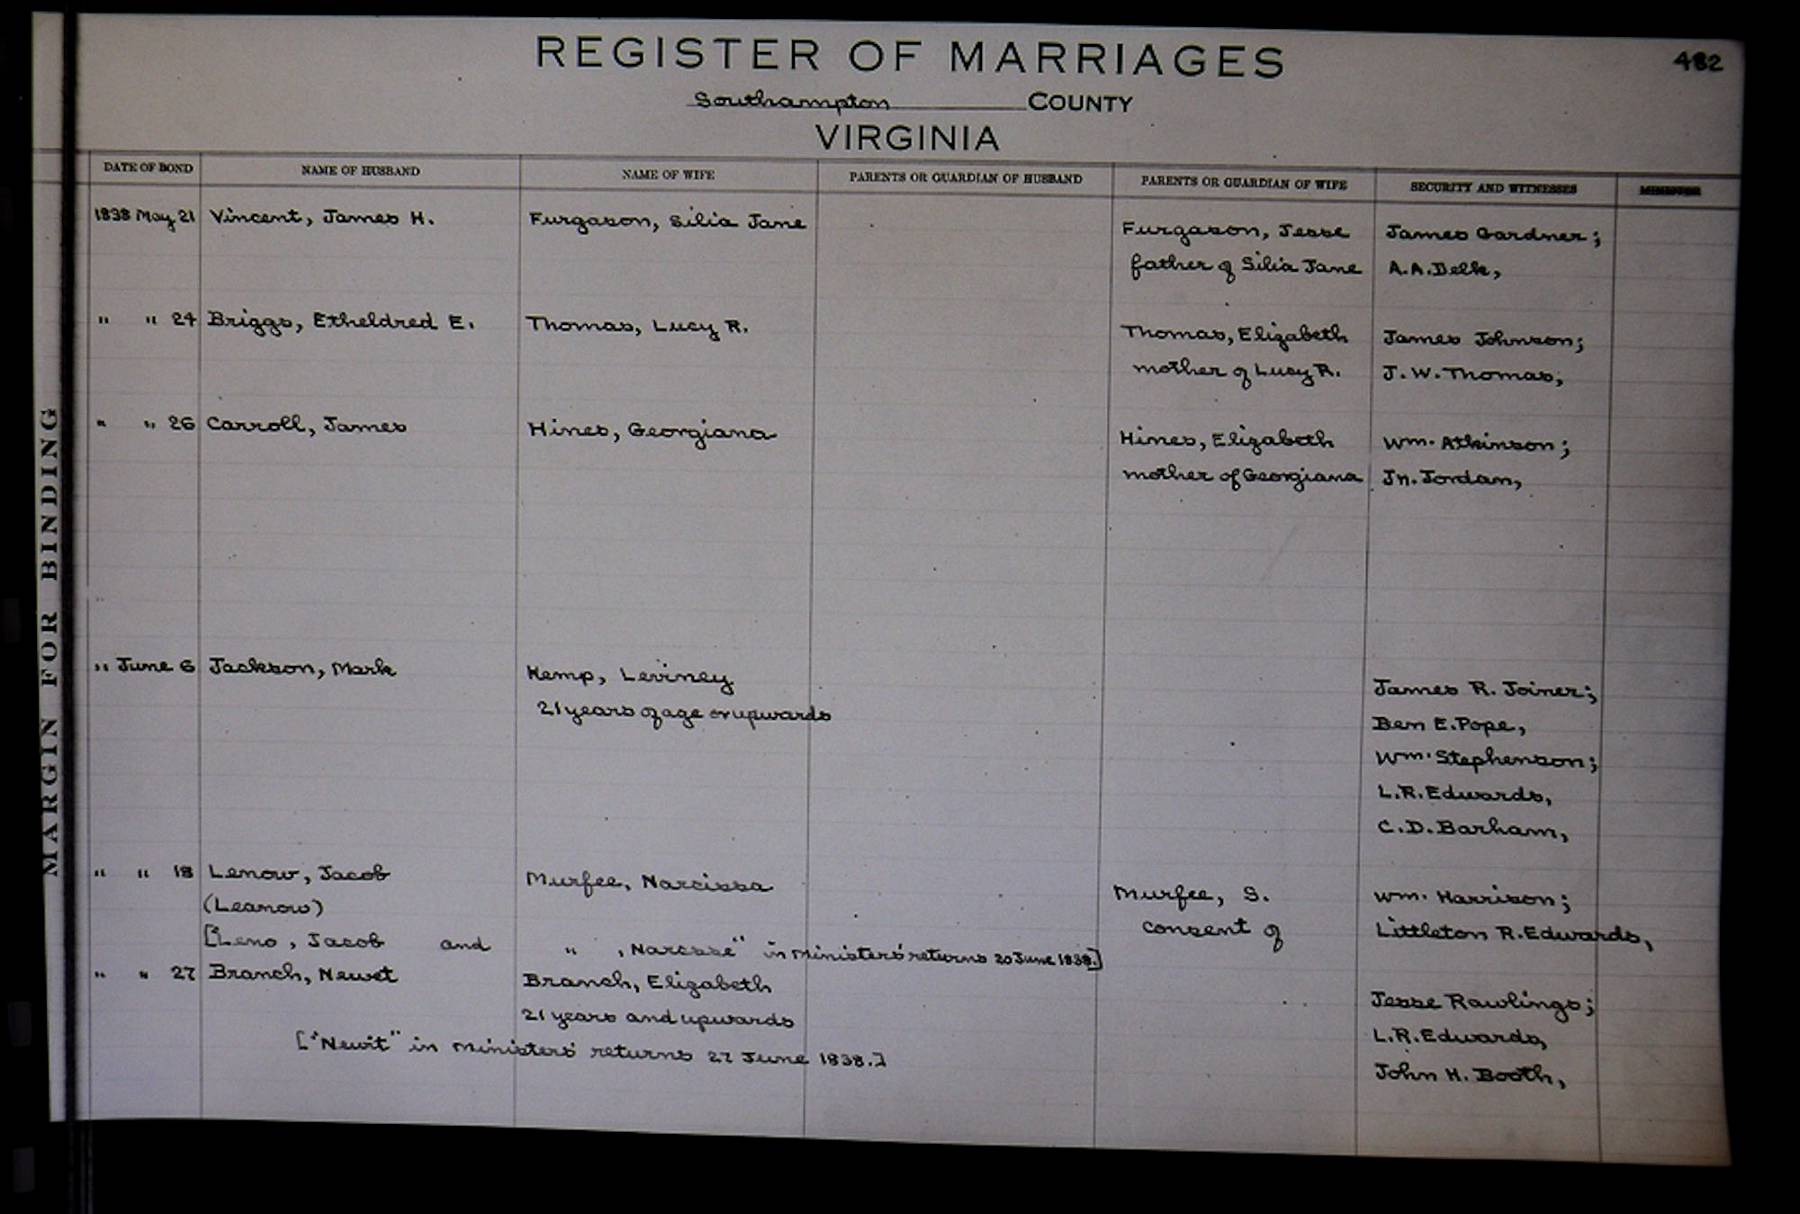 REGISTER OF MARRIAGES
482
Southampton COUNTY
VIRGINIA
DATE OF BOND NAME OF HUSBAND NAME OF WIFE PARENTS OR GUARDIAN OF HUSBAND PARENTS OR GUARDIAN OF WIFE SECURITY AND WITNESSES MINISTER
MARGIN FOR BINDING
1838 May 21 Vincent, James H. Furgason, Silia Jane Furgason, Jesse James Gardner;
father of Silia Jane A.A. Belk,
" " 24 Briggs, Etheldred E. Thomas, Lucy R. Thomas, Elizabeth James Johnson;
mother of Lucy R. J. W. Thomas,
" " 26 Carroll, James Hines, Georgiana Hines, Elizabeth Wm. Atkinson;
mother of Georgiana Jn. Jordan,
" June 6 Jackson, Mark Kemp, Leviney James R. Joiner;
21 years of age or upwards Ben E. Pope,
Wm. Stephenson;
L.R. Edwards,
C.D. Barham,
" " 18 Lenow, Jacob Murfee, Narcissa Murfee, S. Wm. Harrison;
(Leanow) consent of Littleton R. Edwards,
["Leno, Jacob and " , Narcsse" in ministers' returns 20 June 1838.]
" " 27 Branch, Newet Branch, Elizabeth Jesse Rawlings;
21 years and upwards L.R. Edwards,
["Newit" in ministers' returns 27 June 1838.] John H. Booth,